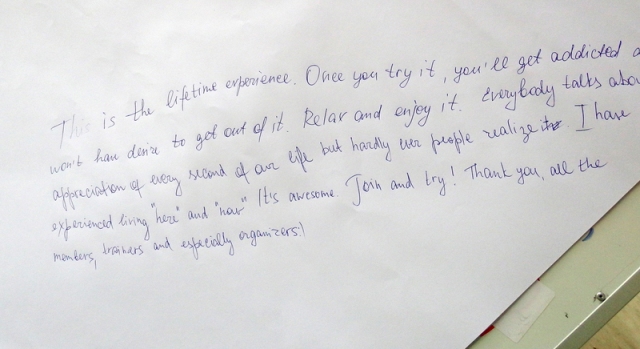 This is the lifetime experience. Once you try it, you'll get addicted a
won't have desire to get out of it. Relax and enjoy it. Everybody talks abou
appreciation of every second of our life but hardly ever people realize it. I have
experienced living "here" and "now" It's awesome. Join and try! Thank you, all the
members, trainers and especially organizers!